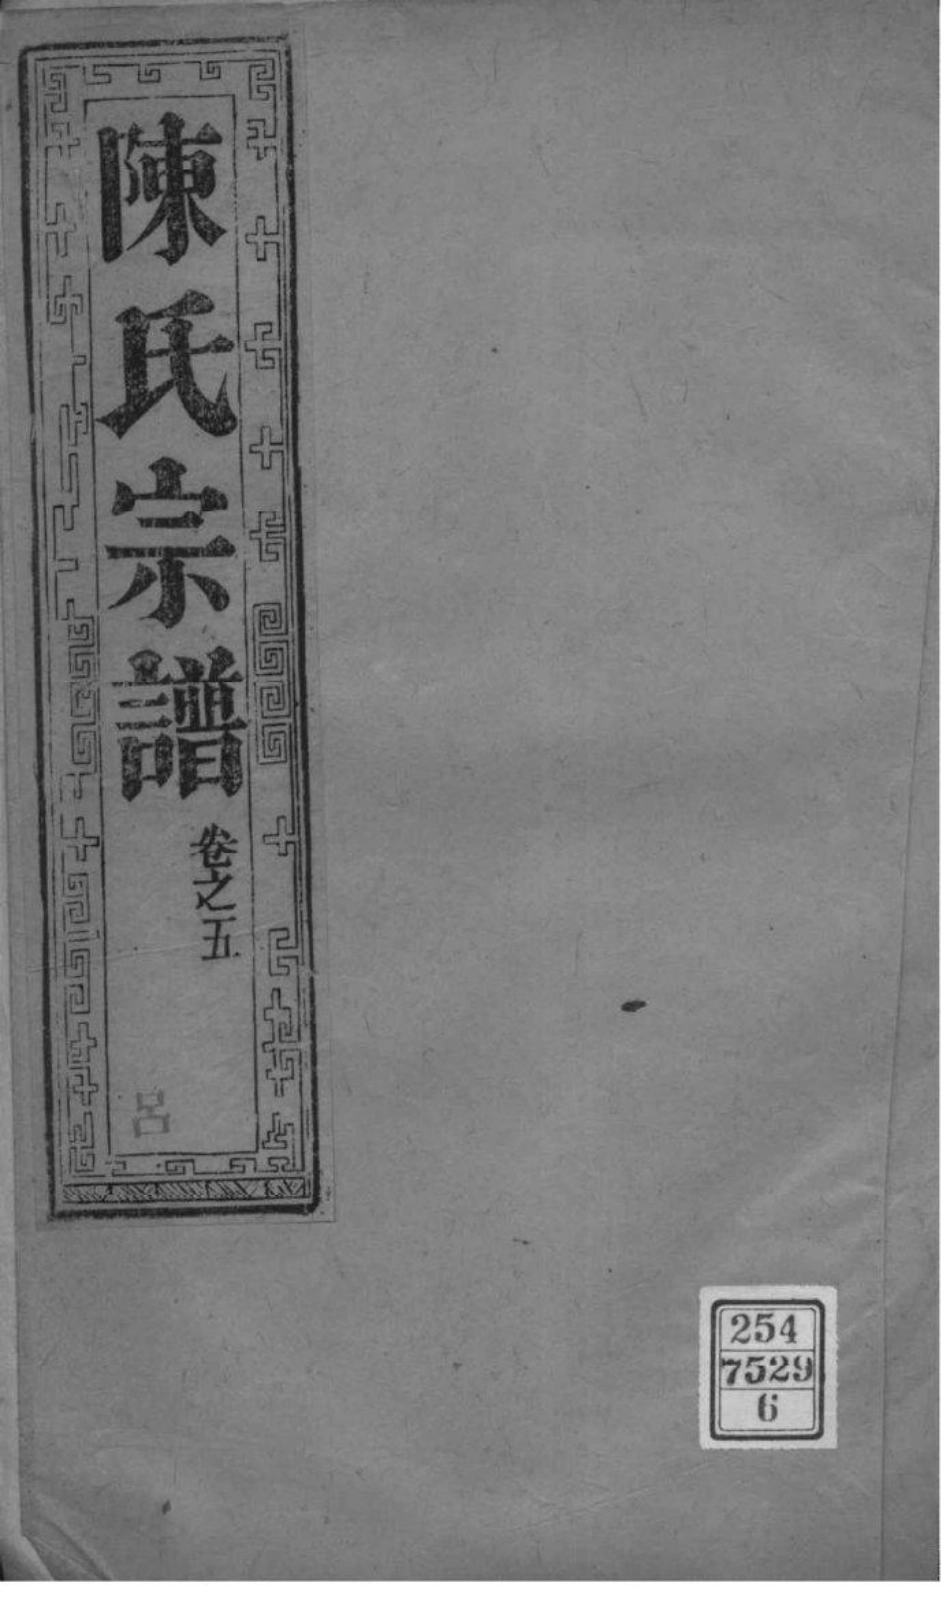 陳氏宗譜
卷之五
呂
254
7529
6